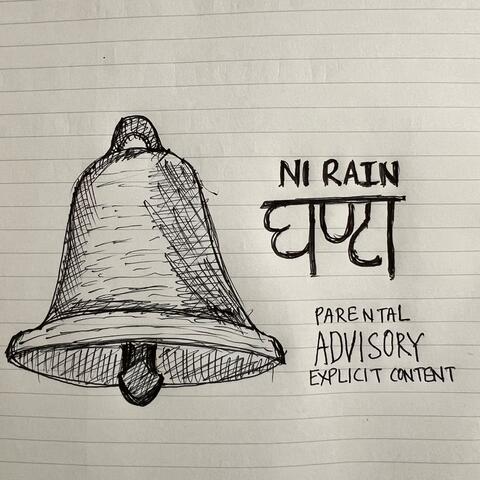 NI RAIN
घण्टा
PARENTAL
ADVISORY
EXPLICIT CONTENT